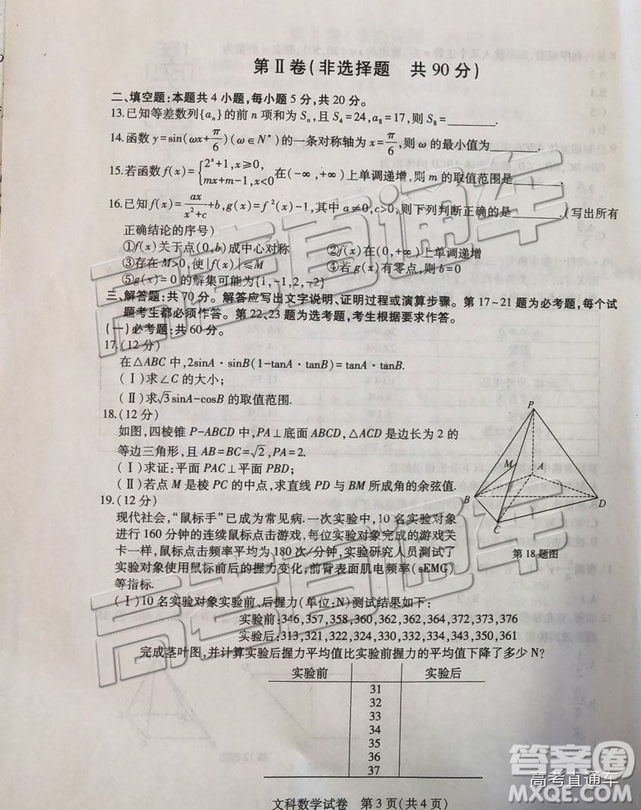 第Ⅱ卷(非选择题 共90分)
二、填空题:本题共4小题,每小题5分,共20分。
13.已知等差数列{aₙ}的前n项和为Sₙ,且S₄=24,a₈=17,则S₈=______.
14.函数y=sin(ωx+π/6)(ω∈N*)的一条对称轴为x=π/6,则ω的最小值为______.
15.若函数f(x)={2ˣ+1,x≥0, mx+m-1,x<0 在(-∞,+∞)上单调递增,则m的取值范围是______
16.已知f(x)=ax/(x²+c)+b,g(x)=f²(x)-1,其中a≠0,c>0,则下列判断正确的是______.(写出所有
正确结论的序号)
①f(x)关于点(0,b)成中心对称 ②f(x)在(0,+∞)上单调递增
③存在M>0,使|f(x)|≤M ④若g(x)有零点,则b=0
⑤g(x)=0的解集可能为{1,-1,2,-2}
三、解答题:共70分。解答应写出文字说明、证明过程或演算步骤。第17~21题为必考题,每个试
题考生都必须作答。第22、23题为选考题,考生根据要求作答。
(一)必考题:共60分。
17.(12分)
在△ABC中,2sinA·sinB(1-tanA·tanB)=tanA·tanB.
(Ⅰ)求∠C的大小;
(Ⅱ)求√3sinA-cosB的取值范围.
18.(12分)
如图,四棱锥P-ABCD中,PA⊥底面ABCD,△ACD是边长为2的
等边三角形,且AB=BC=√2,PA=2.
(Ⅰ)求证:平面PAC⊥平面PBD;
(Ⅱ)若点M是棱PC的中点,求直线PD与BM所成角的余弦值.
P
M
A
B
D
C
第18题图
19.(12分)
现代社会,“鼠标手”已成为常见病.一次实验中,10名实验对象
进行160分钟的连续鼠标点击游戏,每位实验对象完成的游戏关
卡一样,鼠标点击频率平均为180次/分钟,实验研究人员测试了
实验对象使用鼠标前后的握力变化,前臂表面肌电频率(sEMG)
等指标.
(Ⅰ)10名实验对象实验前、后握力(单位:N)测试结果如下:
实验前:346,357,358,360,362,362,364,372,373,376
实验后:313,321,322,324,330,332,334,343,350,361
完成茎叶图,并计算实验后握力平均值比实验前握力的平均值下降了多少N?
实验前 实验后
31
32
33
34
35
36
37
文科数学试卷 第3页(共4页)
高考直通车
高考直通车
答案圈
高考直通车